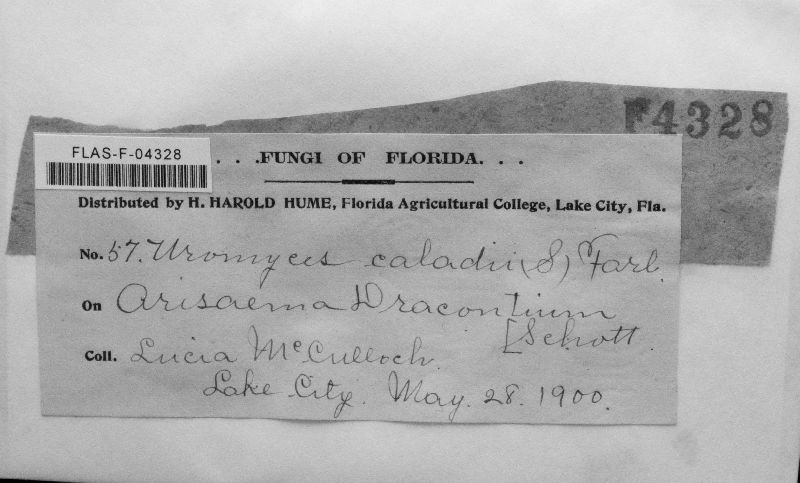 F4328
FLAS-F-04328
. . .FUNGI OF FLORIDA. . .
Distributed by H. HAROLD HUME, Florida Agricultural College, Lake City, Fla.
No. 57. Uromyces caladii (S) Farl.
On Arisaema Dracontium
[Schott.
Coll. Lucia McCulloch.
Lake City. May. 28. 1900.